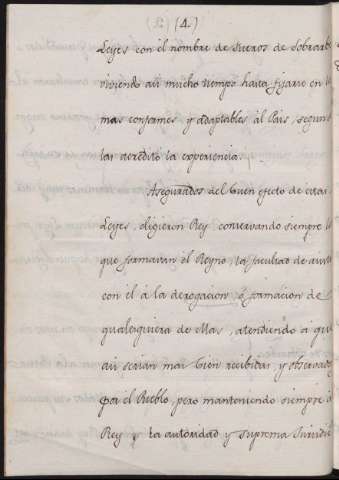 (4.)
Leyes con el nombre de Fueros de Sobrarb
viviendo asi mucho tiempo hasta fijarse en l
mas conformes y adaptables al Pais, segun s
las acreditó la experiencia.
Asegurados del buen efecto de estas
Leyes, eligieron Rey conservando siempre l
que formavan el Reyno, la facultad de
con el á la derogacion ó formacion de
qualesquiera de ellas, atendiendo á qu
asi serian mas bien recibidas y observada
por el Pueblo, pero manteniendo siempre á
Rey y la autoridad y suprema Jurisdic